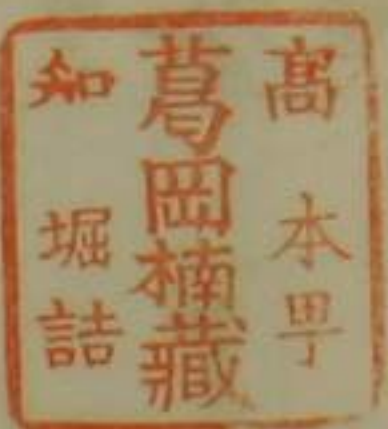 髙本甼
葛岡楠藏
知堀詰